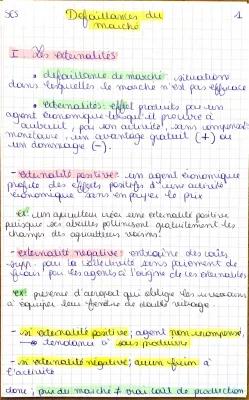 SES
Défaillances du
marché
1
I - Les externalités
• défaillance de marché : situations
dans lesquelles le marché n'est pas efficace
• externalités : effet produits par un
agent économique lorsqu'il procure à
autrui, par son activité, sans compensat°
monétaire, un avantage gratuit (+) ou
un dommage (-).
- externalité positive : un agent économique
profite des effets positifs d'une activité
économique sans en payer le prix
ex : un apiculteur crée une externalité positive
puisque ses abeilles pollinisent gratuitement les
champs des agriculteurs voisins.
- externalité négative : entraîne des coûts
supp. pour la collectivité sans paiement de
par les agents à l'origine de ces externalités
ex : présence d'aéroport qui oblige les riverains
à équiper leur fenêtre de double vitrage.
- si externalité positive ; agent non récompensé,
→ tendance à sous produire
- si externalité négative ; aucun frein à
l'activité
donc, prix du marché ≠ vrai coût de production